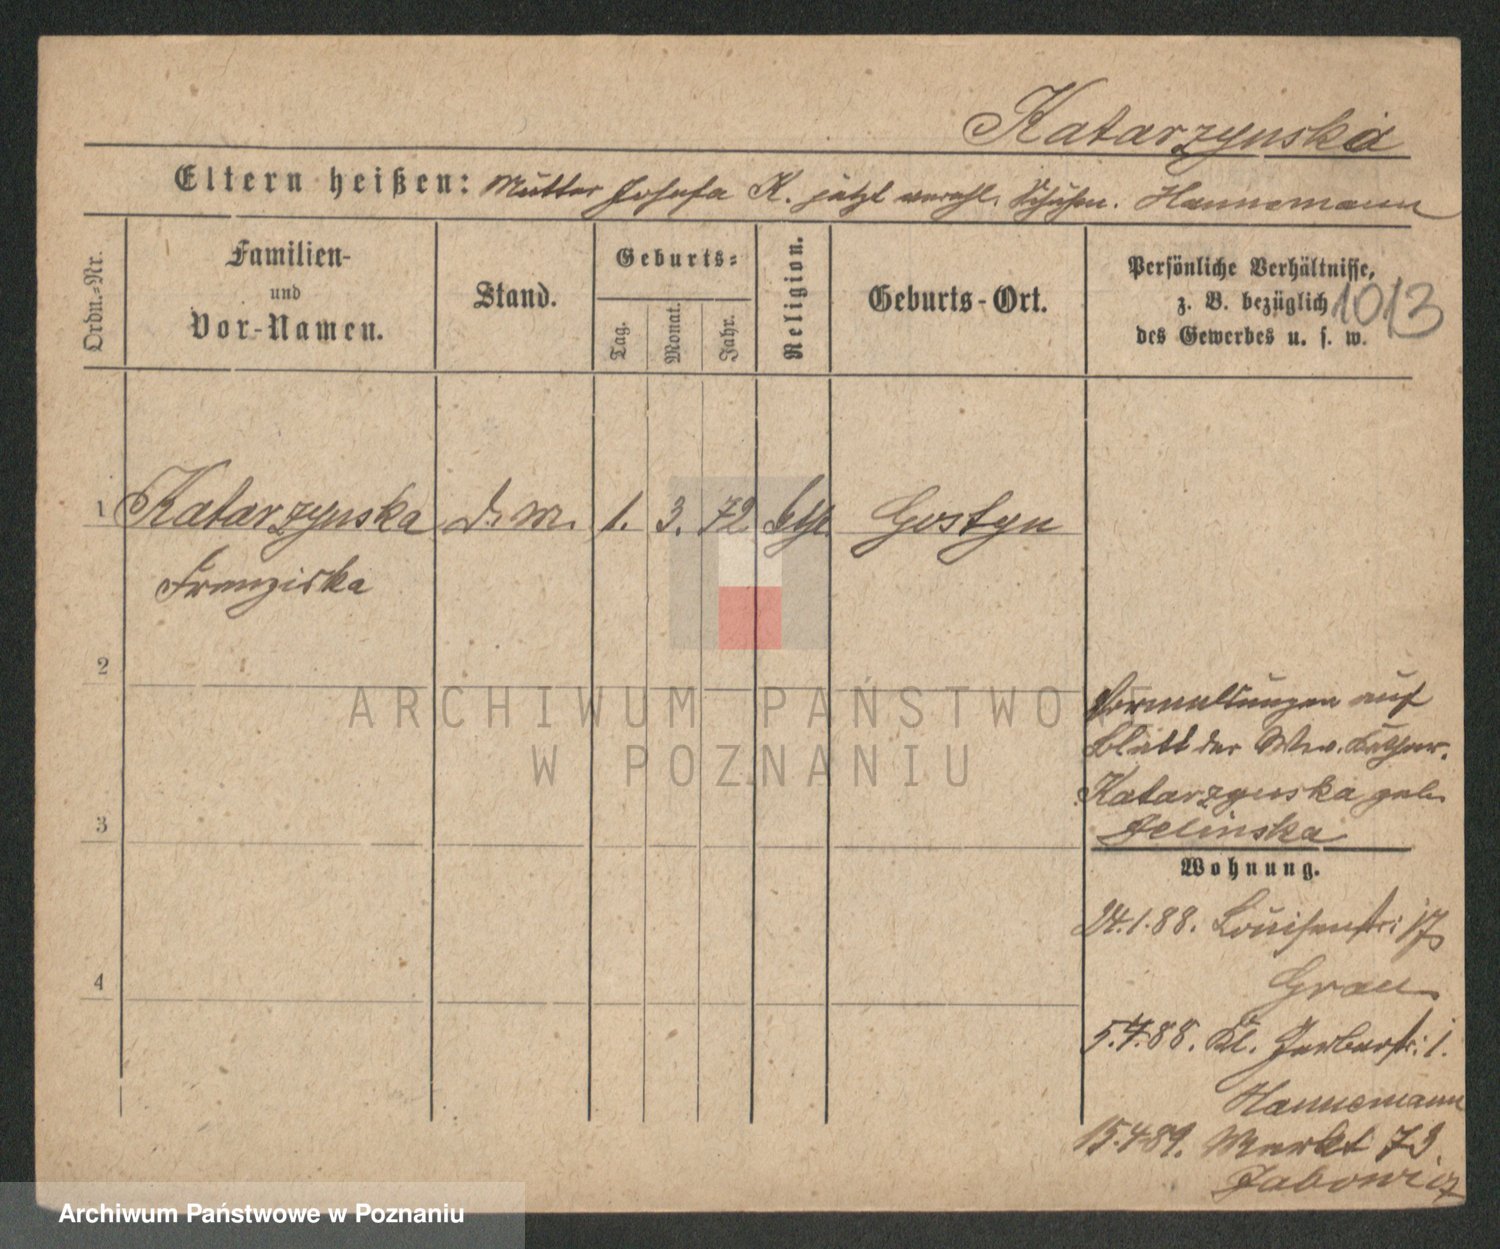 Katarzynska
Eltern heißen: Mutter Josefa K. jetzt verehl. Schuhm. Hannemann
Ordn.-Nr.
Familien-
und
Vor-Namen.
Stand.
Geburts-
Tag.
Monat.
Jahr.
Religion.
Geburts-Ort.
Persönliche Verhältnisse,
z. B. bezüglich
des Gewerbes u. s. w.
1013
1 Katarzynska d. M. 1. 3. 72 kth. Gostyn
Franziska
2
3
4
auf
Blatt der Ww.
Katarzynska geb.
Jelinska
Wohnung.
24.1.88. Louisenstr: 17
Grau
5.4.88. Kl. Gerberstr: 1.
Hannemann
15.4.89. Markt 73
Jabowicz
ARCHIWUM PAŃSTWOWE
W POZNANIU
Archiwum Państwowe w Poznaniu